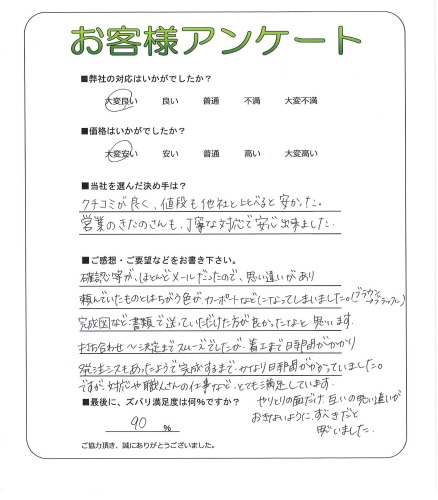 お客様アンケート
■弊社の対応はいかがでしたか？
大変良い 良い 普通 不満 大変不満
■価格はいかがでしたか？
大変安い 安い 普通 高い 大変高い
■当社を選んだ決め手は？
クチコミが良く、値段も他社と比べると安かった。
営業のきたのさんも、丁寧な対応で安心出来ました。
■ご感想・ご要望などをお書き下さい。
確認等が、ほとんどメールだったので、思い違いがあり
頼んでいたものとはちがう色がカーポートなどになってしまいました。(ブラウン→ブラック)
完成図など書類で送っていただけた方が良かったなと思います。
打ち合わせ〜決定までスムーズでしたが、着工まで日時間がかかり
発注ミスもあったようで完成するまで、かなり日時間がかかっていました。
ですが、対応や職人さんの仕事など、とても満足しています。
やりとりの面だけ、互いの思い違いが
おきないように、すべきだと
思いました。
■最後に、ズバリ満足度は何％ですか？
90 ％
ご協力頂き、誠にありがとうございました。